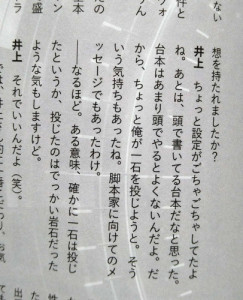 想を持たれましたか?
井上 ちょっと設定がごちゃごちゃしてたよ
ね。あとは、頭で書いてる台本だなと思った。
台本はあまり頭でやるとよくないんだよ。だ
から、ちょっと俺が一石を投じようと。そう
いう気持ちもあったね。脚本家に向けてのメ
ッセージでもあったわけ。
――なるほど。ある意味、確かに一石は投じ
たというか、投じたのはでっかい岩石だった
ような気もしますけど。
井上 それでいいんだよ(笑)。